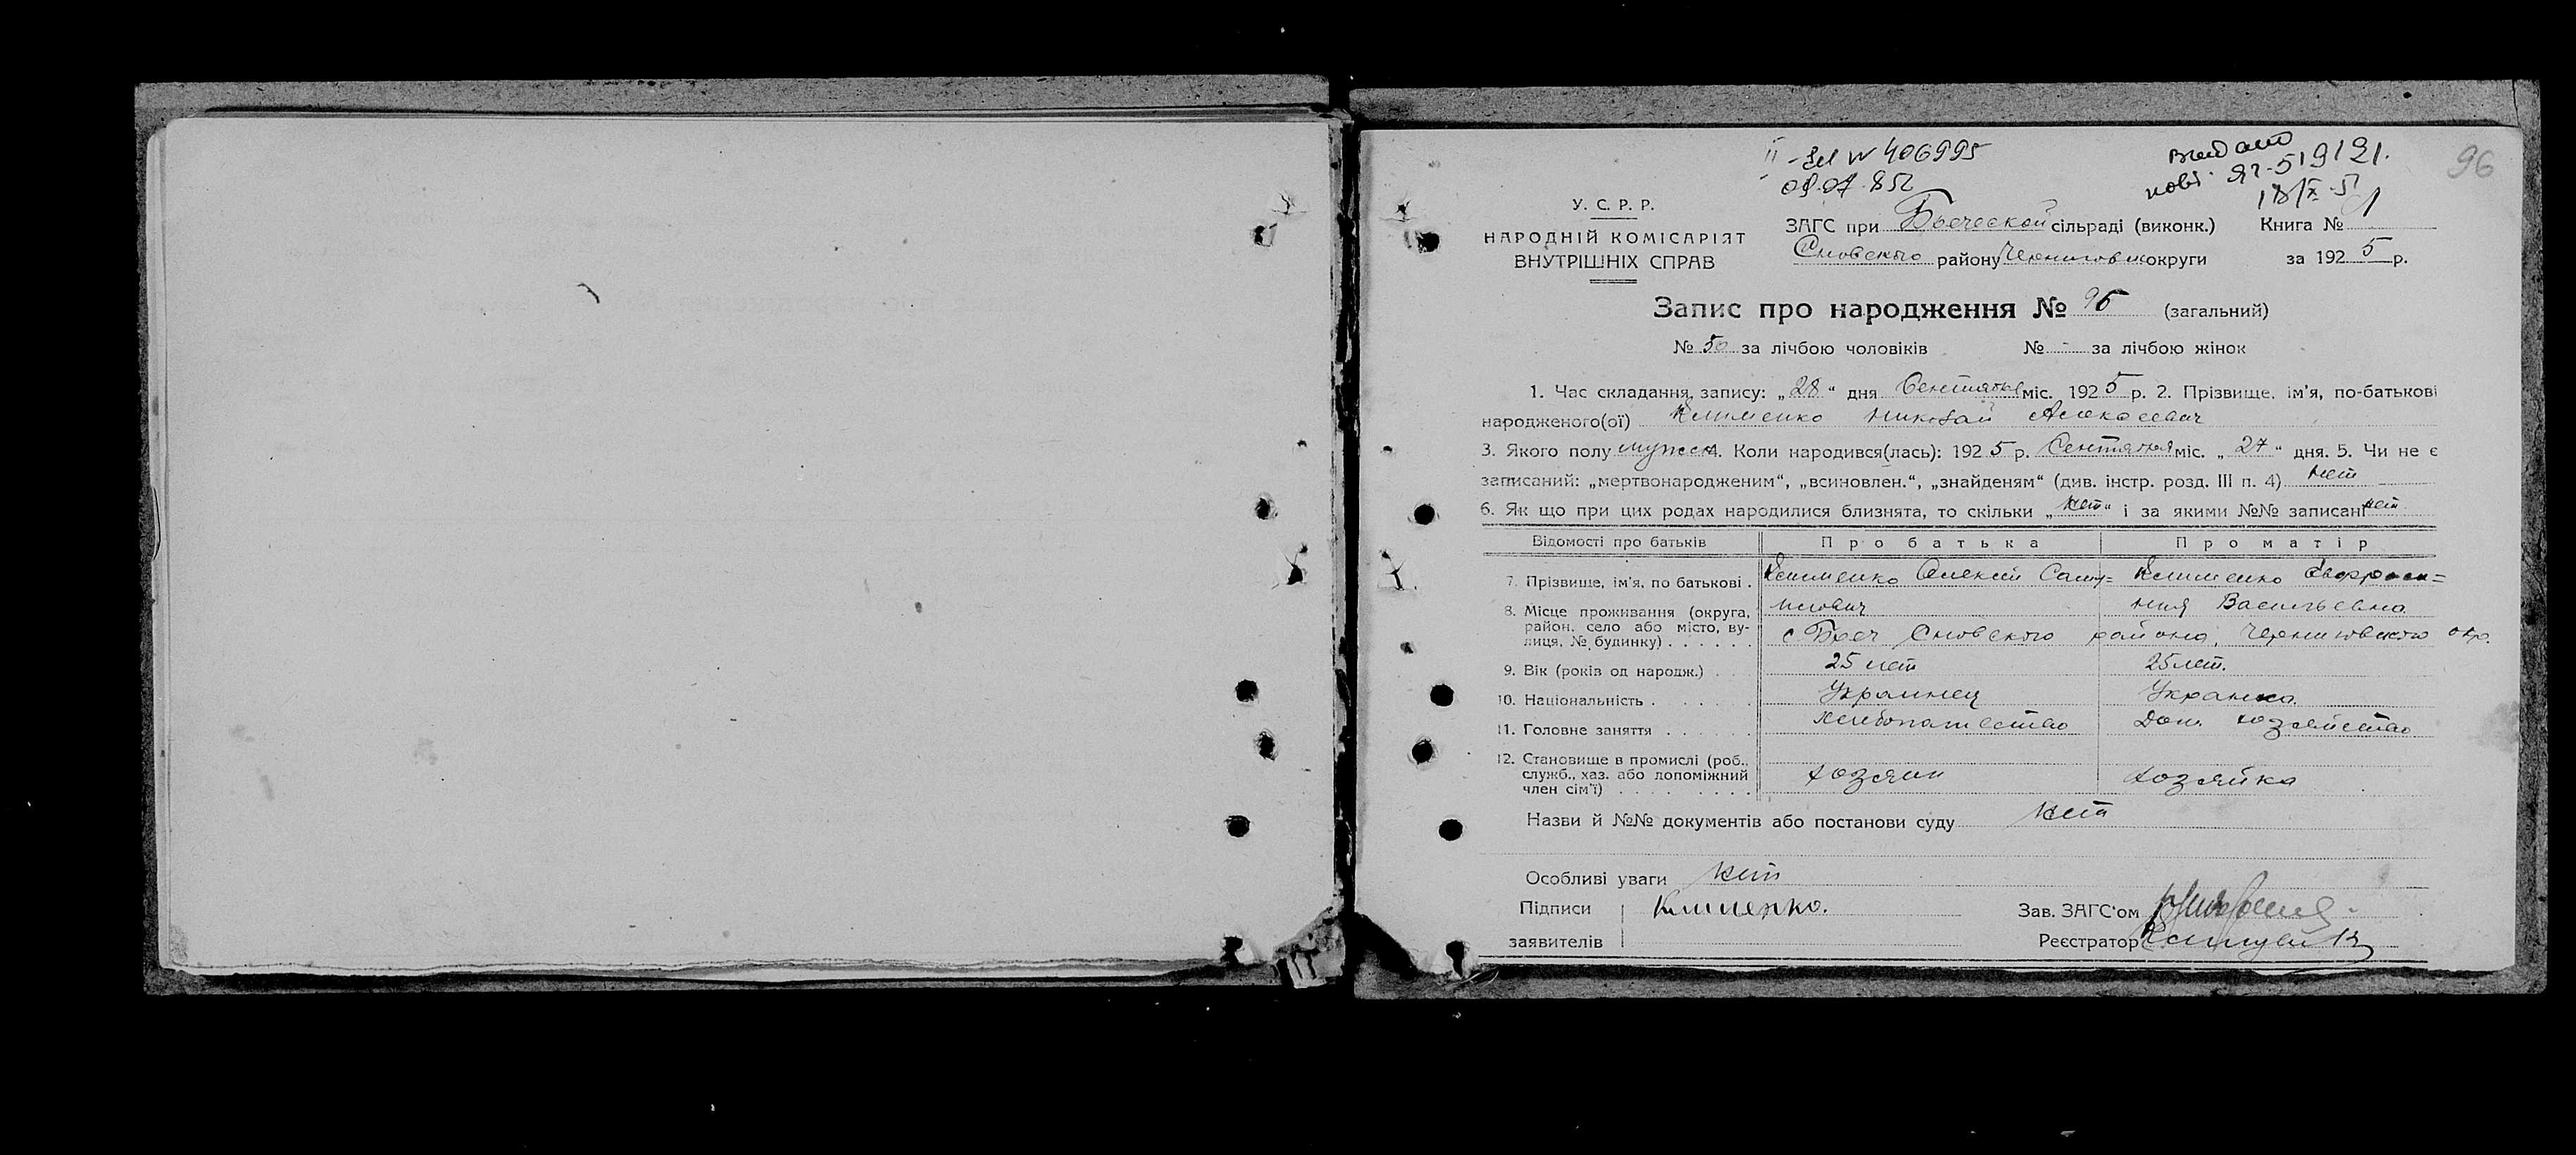 II - ЯЛ № 406995
09.07.85г
видано
нові. ЯГ-519121.
18/IX-5
96
У. С. Р. Р.
НАРОДНІЙ КОМІСАРІЯТ
ВНУТРІШНІХ СПРАВ
ЗАГС при Бреческой сільраді (виконк.) Книга № 1
Сновского району Черниговск округи за 1925 р.
Запис про народження № 96 (загальний)
№ 50 за лічбою чоловіків № - за лічбою жінок
1. Час складання запису: „28“ дня Сентября міс. 1925 р. 2. Прізвище, ім'я, по-батькові
народженого(ої) Клименко Николай Алексеевич
3. Якого полу мужск 4. Коли народився(лась): 1925 р. Сентября міс. „27“ дня. 5. Чи не є
записаний: „мертвонародженим“, „всиновлен.“, „знайденям“ (див. інстр. розд. III п. 4) нет
6. Як що при цих родах народилися близнята, то скільки „нет“ і за якими №№ записані нет
Відомості про батьків Про батька Про матір
7. Прізвище, ім'я, по батькові . Клименко Алексей Саму= Клименко Евфроси=
илович ния Васильевна
8. Місце проживання (округа, район, село або місто, вулиця, № будинку) . . . . . . с Бреч Сновского района, Черниговского окр.
9. Вік (років од народж.) . . 25 лет 25 лет.
10. Національність . . . . . . Украинец Украинка.
11. Головне заняття . . . . . . хлебопашество Дом. хозяйство
12. Становище в промислі (роб., служб., хаз. або допоміжний член сім'ї) . . . . . . . . хозяин хозяйка
Назви й №№ документів або постанови суду нет
Особливі уваги нет
Підписи Клименко. Зав. ЗАГС'ом
заявителів Реєстратор